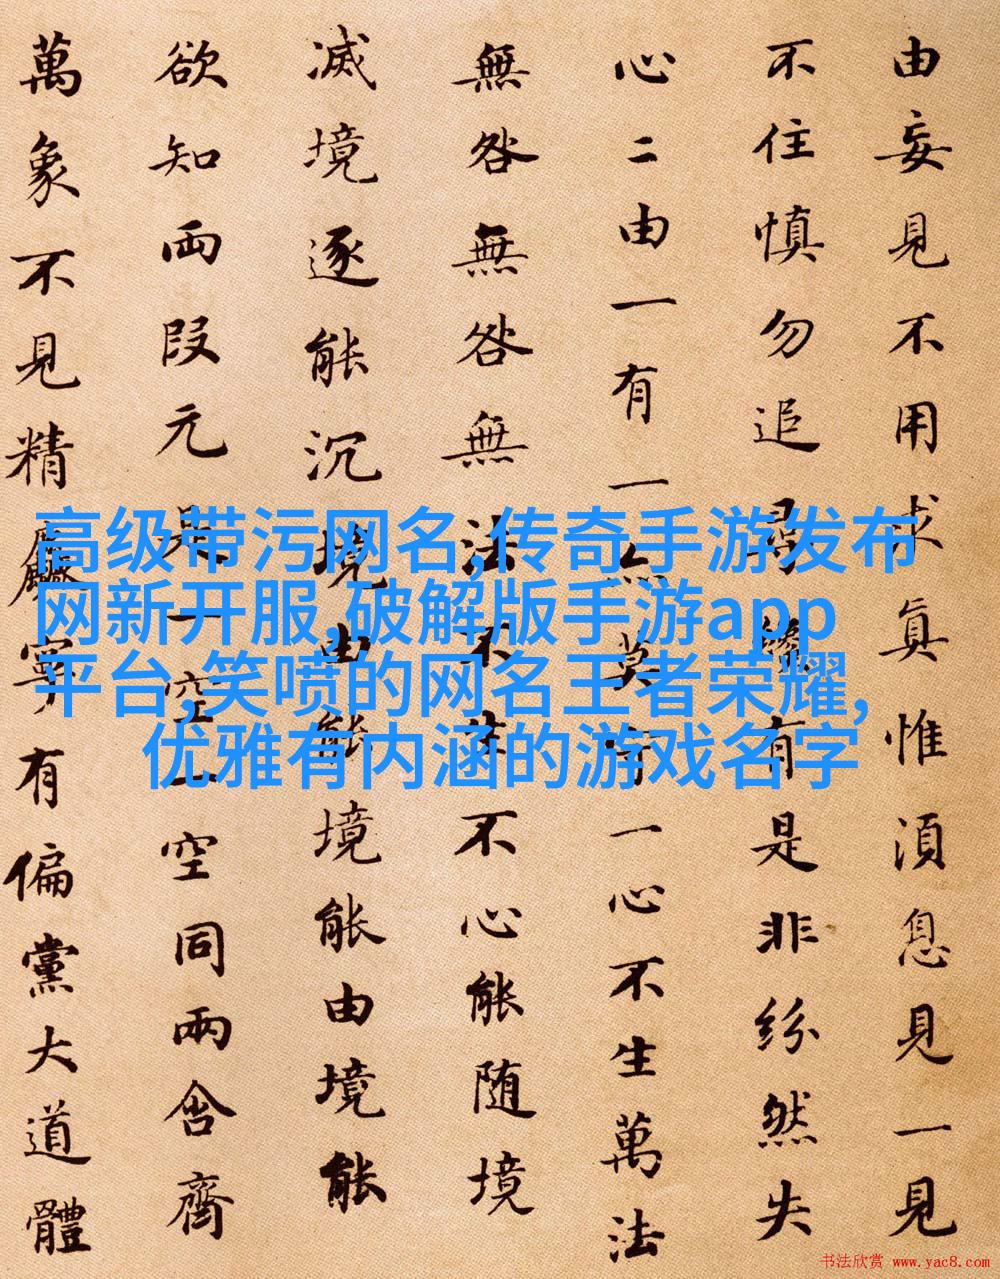 由妄見不用求真惟湏息見一見
不住慎勿追尋纔有是非紛然失
心二由一有一亦莫守一心不生萬法
無咎無咎無法不生不心能随境
滅境逐能沉境由能境能由境能
欲知兩段元是一空一空同兩含齊
萬象不見精麤寧有偏黨大道體
高级带污网名,传奇手游发布
网新开服,破解版手游app
平台,笑喷的网名王者荣耀,
优雅有内涵的游戏名字
书法欣赏 www.yac8.com